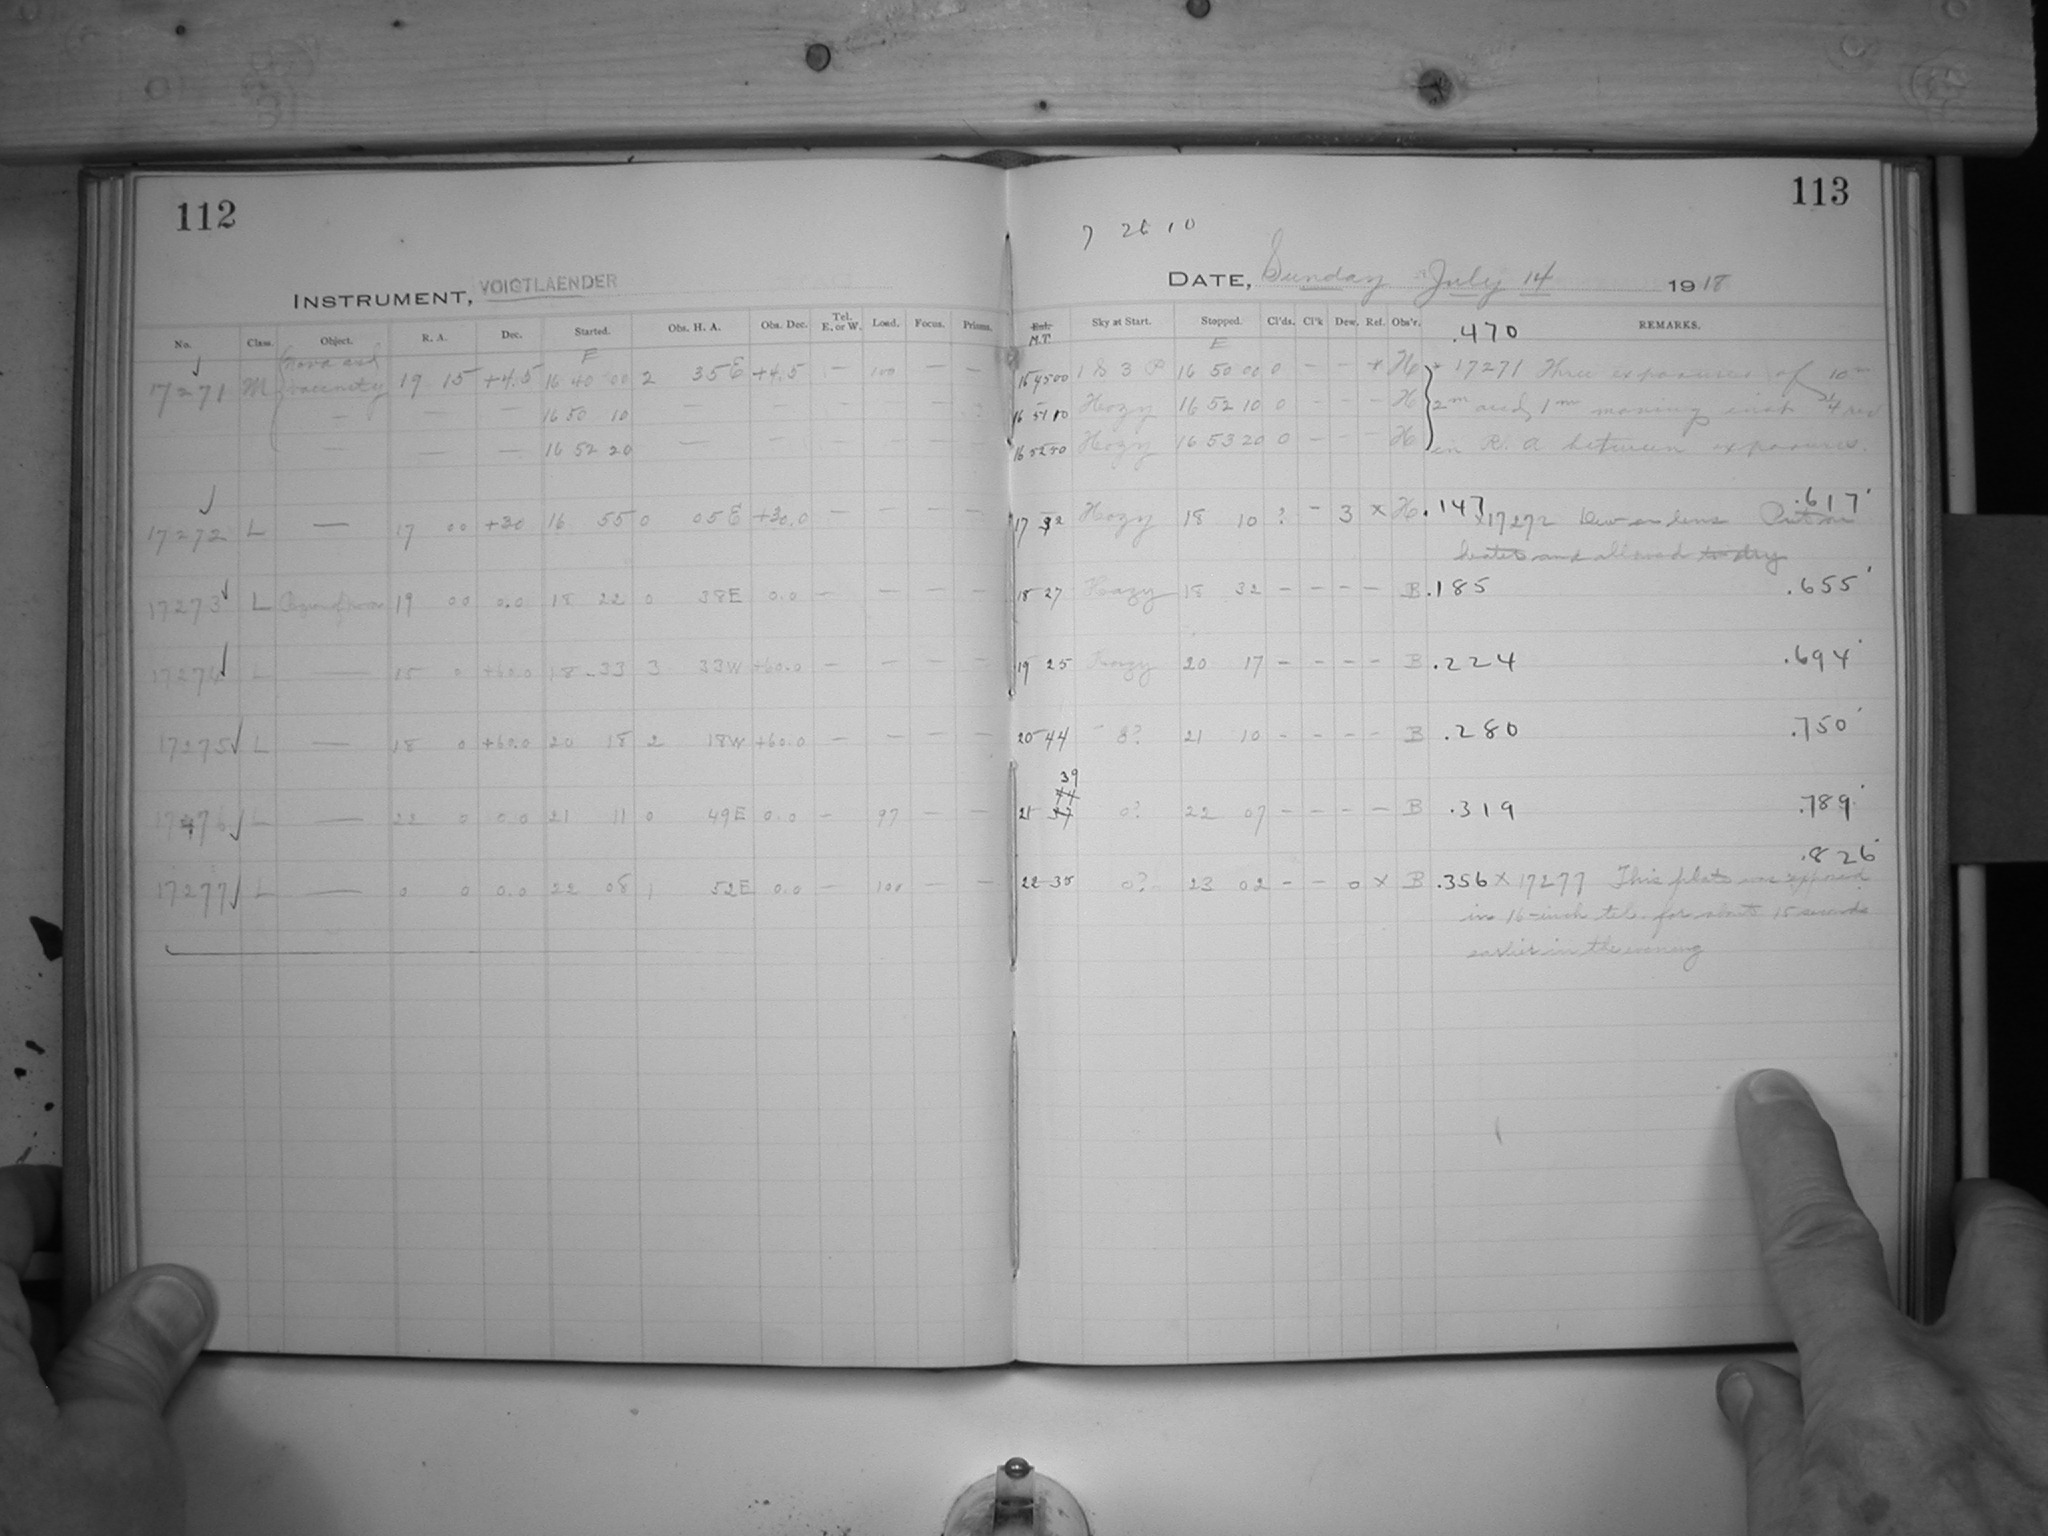 112
113
7 26 10
INSTRUMENT, VOIGTLAENDER
DATE, Sunday July 14 1918
No. Class. Object. R. A. Dec. Started. Obs. H. A. Obs. Dec. Tel. E. or W. Load. Focus. Prisms. Ext. M.T. Sky at Start. Stopped. Cl'ds. Cl'k Dew. Ref. Obs'r. .470 REMARKS.
E E
Nova and
17271 M vicinity 19 15 +4.5 16 40 00 2 35E +4.5 — 100 — — 16 45 00 1 S 3 P 16 50 00 0 - - + H × 17271 Three exposures of 10m
— — — 16 50 10 — — — — — — 16 51 10 Hazy 16 52 10 0 - - - H 2m and 1m moving
— — — 16 52 20 — — — — — — 16 52 50 Hazy 16 53 20 0 - - - H in R. A between exposures.
17272 L — 17 00 +30 16 55 0 05E +30.0 — — — — 17 32 Hazy 18 10 ? - 3 × H .147 ×17272 Dew on lens Put on .617'
heater and allowed to dry
17273 L 19 00 0.0 18 22 0 38E 0.0 — — — — 18 27 Hazy 18 32 - - - - B .185 .655'
17274 L — 15 0 +60.0 18 33 3 33W +60.0 — — — — 19 25 Hazy 20 17 - - - - B .224 .694'
17275 L — 18 0 +60.0 20 18 2 18W +60.0 — — — — 20 44 8? 21 10 - - - - B .280 .750'
39
17276 L — 22 0 0.0 21 11 0 49E 0.0 — 97 — — 21 0? 22 07 - - - - B .319 .789'
.826'
17277 L — 0 0 0.0 22 08 1 52E 0.0 — 100 — — 22 35 0? 23 02 - - 0 × B .356 × 17277 This plate was exposed
in 16-inch tel. for about 15 seconds
earlier in the evening